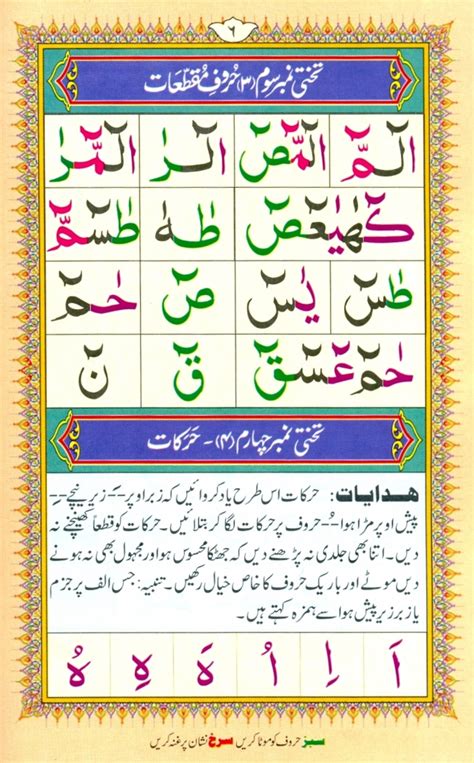 ۶
تختی نمبر سوم (۳) حُروفِ مُقطّعات
الٓمّٓ الٓمّٓصٓ الٓرٰ الٓمّٓرٰ
کٓهٰیٰعٓصٓ طٰهٰ طٰسٓمّٓ
طٰسٓ یٰسٓ صٓ حٰمٓ
حٰمٓ عٓسٓقٓ قٓ نٓ
تختی نمبر چہارم (۴) - حَرَکات
ھدایات: حرکات اس طرح یاد کروائیں کہ زبر اوپر -َ- زیر نیچے -ِ-
پیش اوپر مڑا ہوا -ُ- حروف پر حرکات لگا کر بتلائیں۔ حرکات کو قطعاً کھینچنے نہ
دیں۔ اتنا بھی جلدی نہ پڑھنے دیں کہ جھٹکا محسوس ہو اور مجہول بھی نہ ہونے
دیں موٹے اور باریک حروف کا خاص خیال رکھیں۔ تنبیہ: جس الف پر جزم
یا زبر زیر پیش ہو اسے ہمزہ کہتے ہیں۔
اَ اِ اُ هَ هِ هُ
سبز حروف کو موٹا کریں سرخ نشان پر غنہ کریں